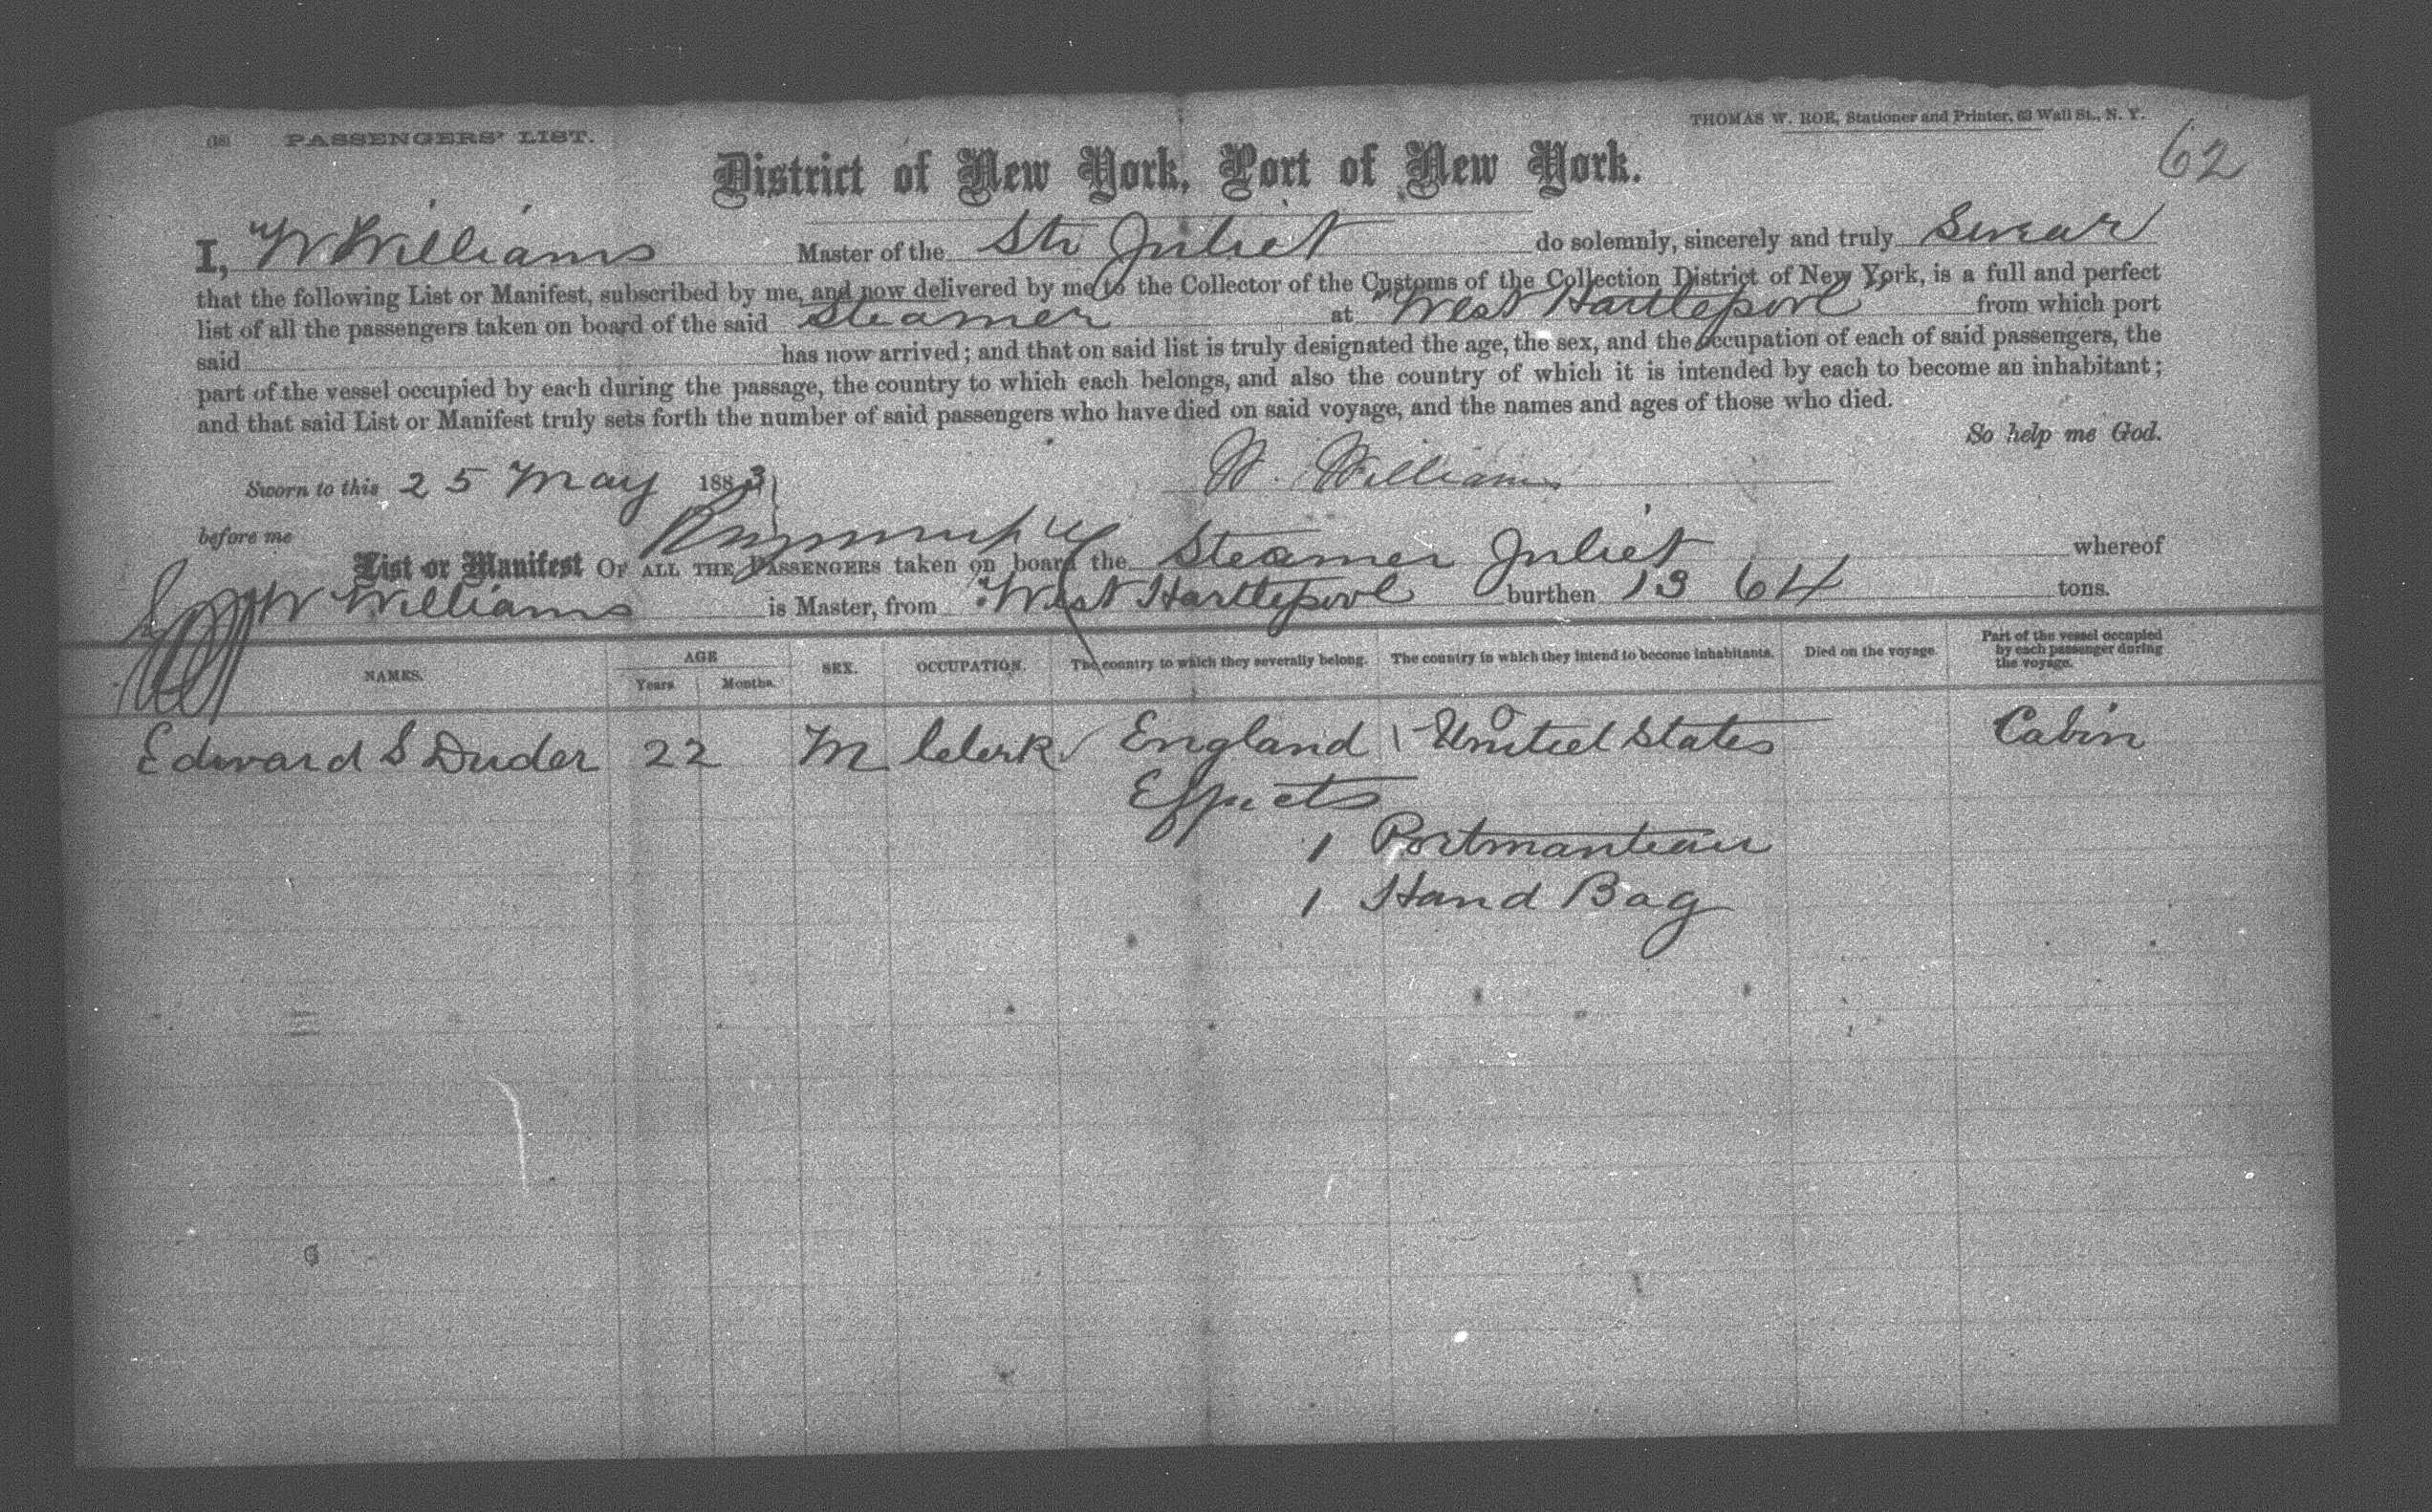 (18) PASSENGERS' LIST.
THOMAS W. ROE, Stationer and Printer, 63 Wall St., N. Y.
62
District of New York, Port of New York.
I, W Williams Master of the Str Juliet do solemnly, sincerely and truly Swear
that the following List or Manifest, subscribed by me, and now delivered by me to the Collector of the Customs of the Collection District of New York, is a full and perfect
list of all the passengers taken on board of the said Steamer at West Hartlepool from which port
said has now arrived; and that on said list is truly designated the age, the sex, and the occupation of each of said passengers, the
part of the vessel occupied by each during the passage, the country to which each belongs, and also the country of which it is intended by each to become an inhabitant;
and that said List or Manifest truly sets forth the number of said passengers who have died on said voyage, and the names and ages of those who died.
So help me God.
Sworn to this 25 May 1883 W. Williams
before me
List or Manifest OF ALL THE PASSENGERS taken on board the Steamer Juliet whereof
W Williams is Master, from West Hartlepool burthen 1364 tons.
NAMES. AGE Years. Months. SEX. OCCUPATION. The country to which they severally belong. The country in which they intend to become inhabitants. Died on the voyage. Part of the vessel occupied by each passenger during the voyage.
Edward S Duder 22 M Clerk England United States Cabin
Effects
1 Portmanteau
1 Hand Bag